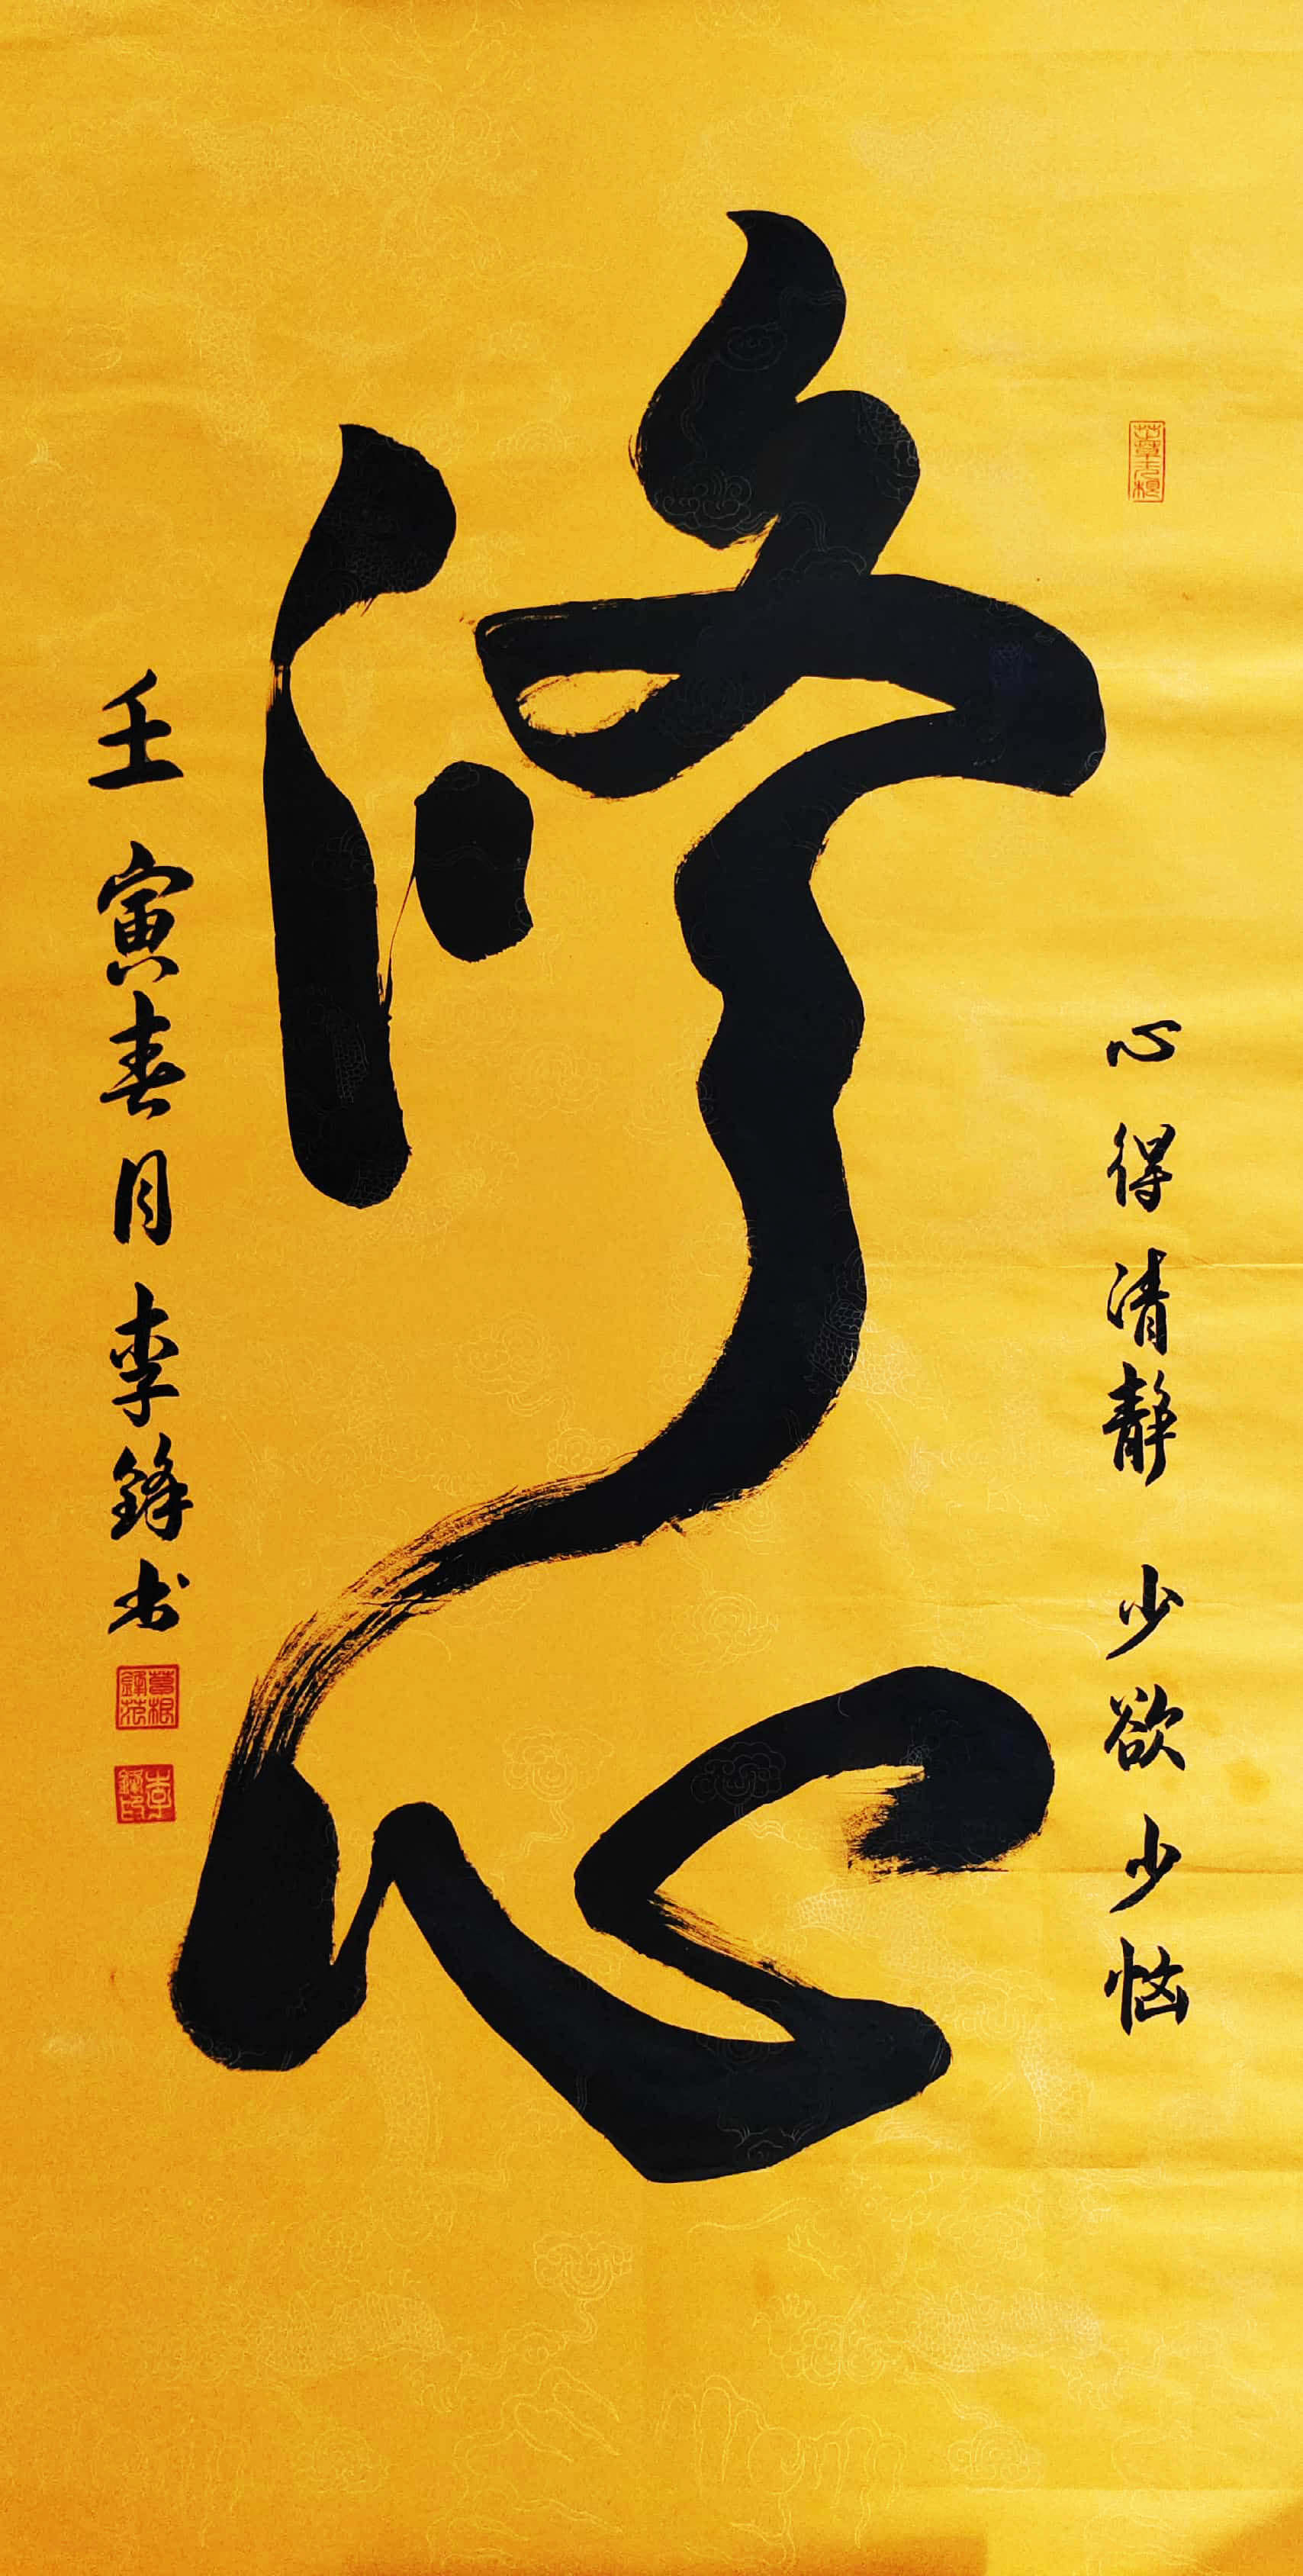 心得清静 少欲少恼
修心
壬寅春月李锋书